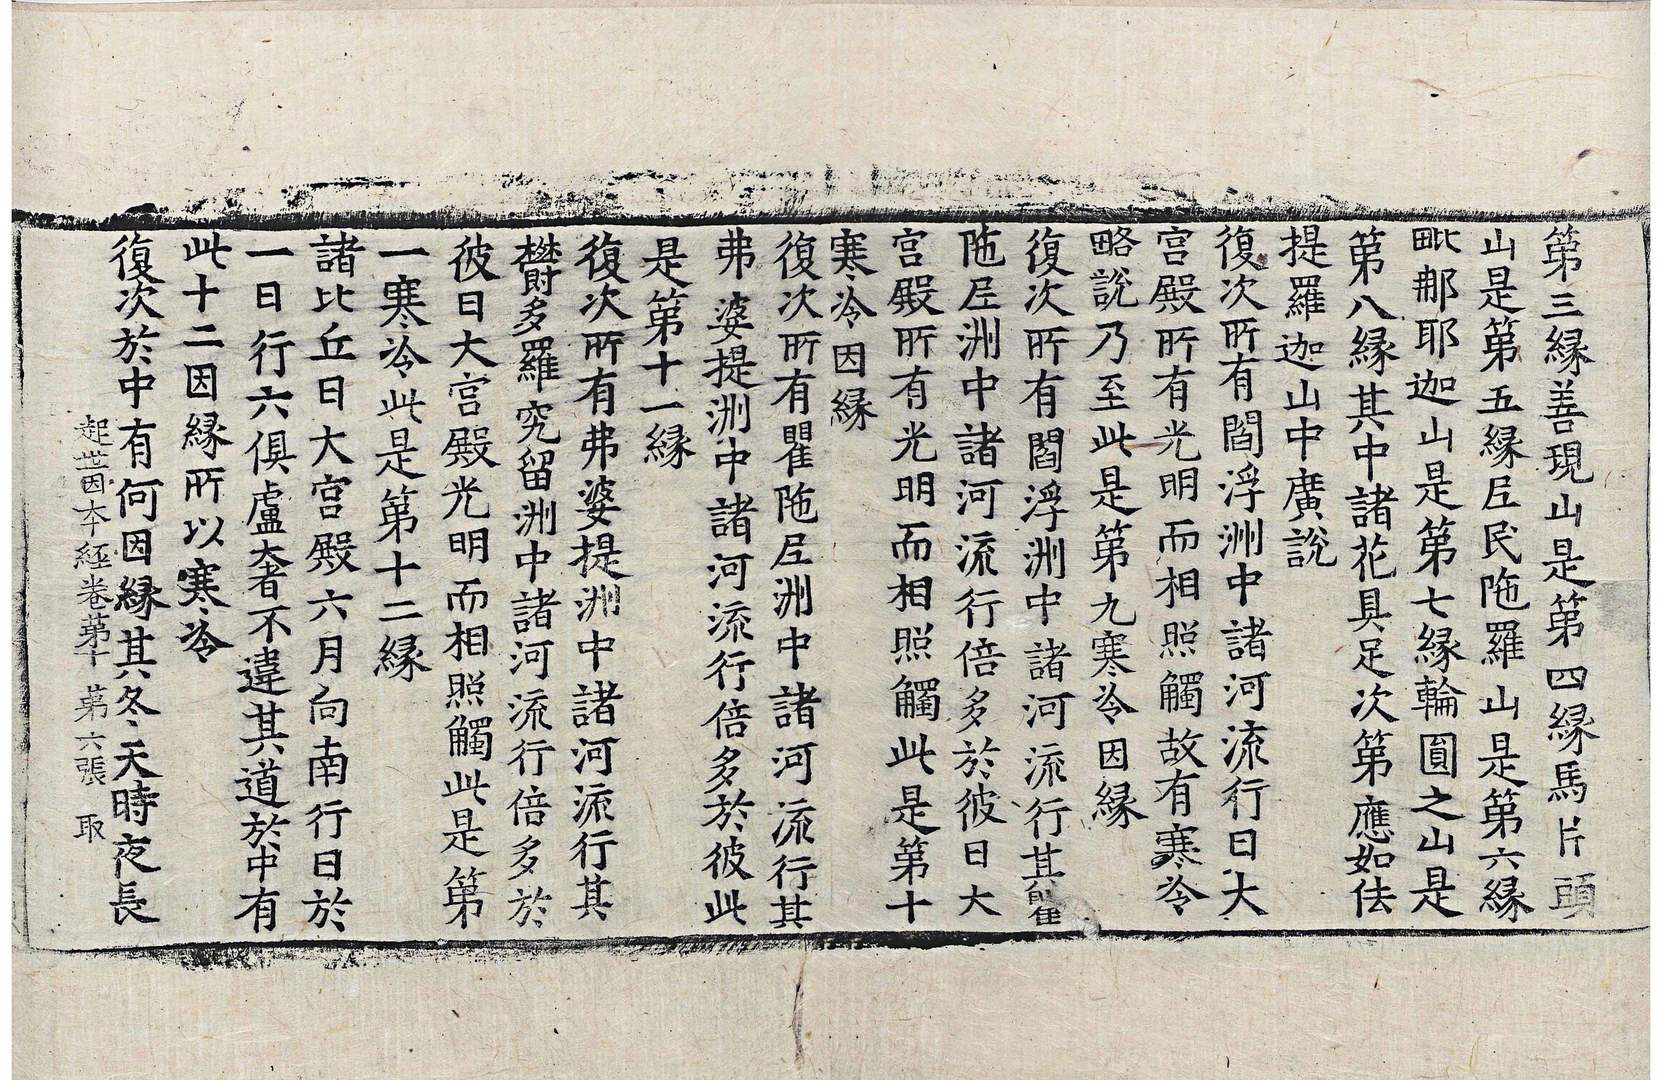 第三縁善現山是第四縁馬片頭
山是第五縁尼民陁羅山是第六縁
毗那耶迦山是第七縁輪圓之山是
第八縁其中諸花具足次第應如佉
提羅迦山中廣說
復次所有閻浮洲中諸河流行日大
宮殿所有光明而相照觸故有寒冷
略說乃至此是第九寒冷因縁
復次所有閻浮洲中諸河流行其瞿
陁尼洲中諸河流行倍多於彼日大
宮殿所有光明而相照觸此是第十
寒冷因縁
復次所有瞿陁尼洲中諸河流行其
弗婆提洲中諸河流行倍多於彼此
是第十一縁
復次所有弗婆提洲中諸河流行其
欝多羅究留洲中諸河流行倍多於
彼日大宮殿光明而相照觸此是第
一寒冷此是第十二縁
諸比丘日大宮殿六月向南行日於
一日行六俱盧奢不違其道於中有
此十二因縁所以寒冷
復次於中有何因縁其冬天時夜長
起世因本経卷第十 第六張 取